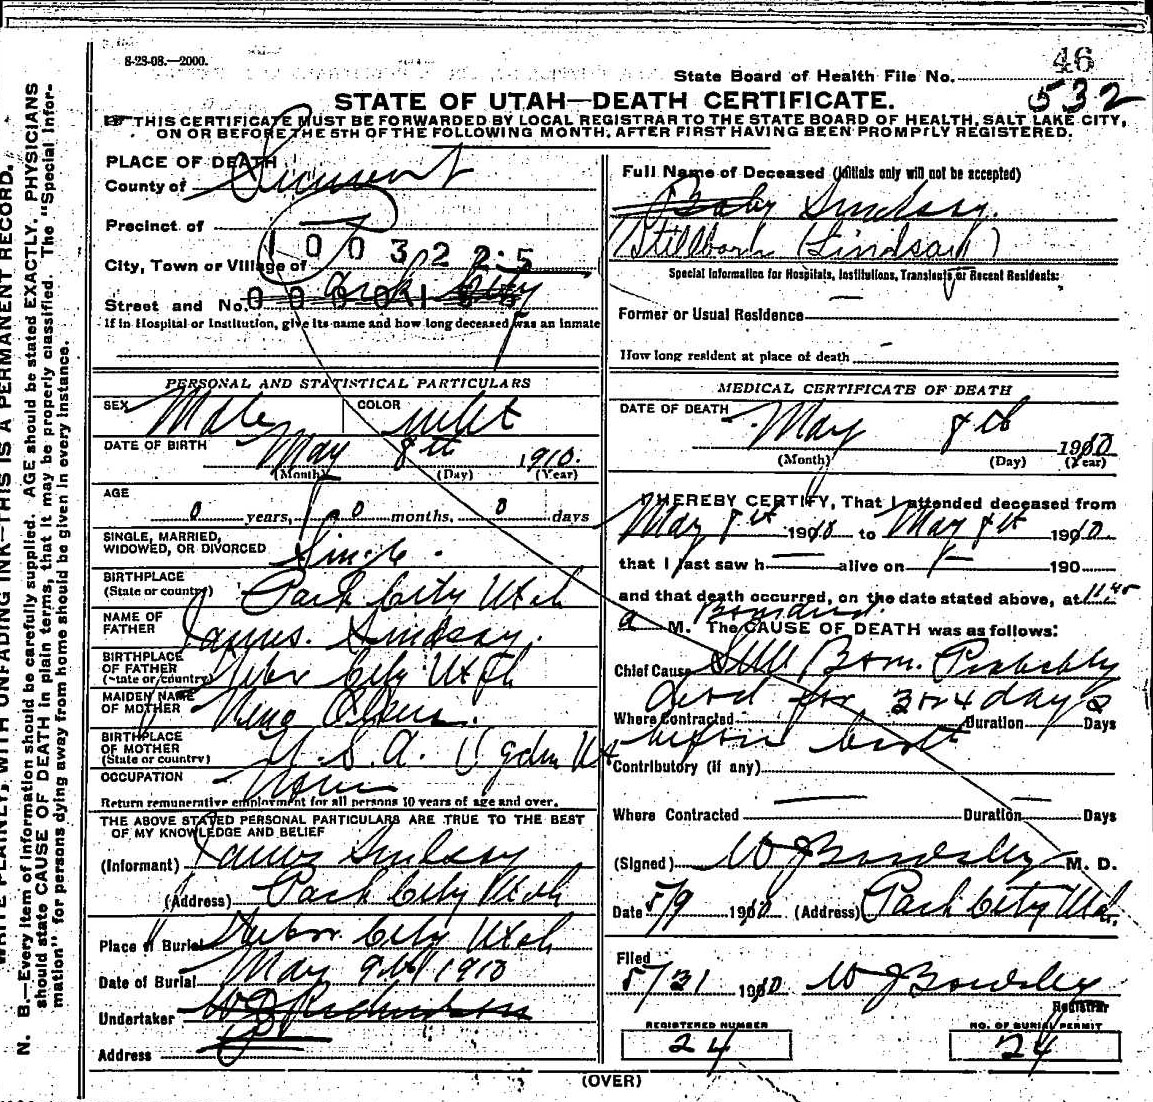 8-23-08.—2000.
46
State Board of Health File No.
532
STATE OF UTAH—DEATH CERTIFICATE.
☞ THIS CERTIFICATE MUST BE FORWARDED BY LOCAL REGISTRAR TO THE STATE BOARD OF HEALTH, SALT LAKE CITY,
ON OR BEFORE THE 5TH OF THE FOLLOWING MONTH, AFTER FIRST HAVING BEEN PROMPTLY REGISTERED.
PLACE OF DEATH
County of Summit
Precinct of
1003225
City, Town or Village of Park City
Street and No.
If in Hospital or Institution, give its name and how long deceased was an inmate
PERSONAL AND STATISTICAL PARTICULARS
SEX Male COLOR White
DATE OF BIRTH May 8th 1910.
(Month) (Day) (Year)
AGE
0 years, 0 months, 0 days
SINGLE, MARRIED,
WIDOWED, OR DIVORCED Single.
BIRTHPLACE
(State or country) Park City Utah
NAME OF
FATHER James Lindsay.
BIRTHPLACE
OF FATHER
(State or country) Heber City Utah
MAIDEN NAME
OF MOTHER
BIRTHPLACE
OF MOTHER
(State or country) U.S.A. Ogden Ut
OCCUPATION None
Return remunerative employment for all persons 10 years of age and over.
THE ABOVE STATED PERSONAL PARTICULARS ARE TRUE TO THE BEST
OF MY KNOWLEDGE AND BELIEF
(Informant) James Lindsay
(Address) Park City Utah
Place of Burial Heber City Utah
Date of Burial May 9th 1910
Undertaker
Address
Full Name of Deceased (Initials only will not be accepted)
Baby Lindsay.
Stillborn (Lindsay)
Special Information for Hospitals, Institutions, Transients, or Recent Residents:
Former or Usual Residence
How long resident at place of death
MEDICAL CERTIFICATE OF DEATH
DATE OF DEATH May 8th 1910
(Month) (Day) (Year)
I HEREBY CERTIFY, That I attended deceased from
May 8th 1910 to May 8th 1910.
that I last saw h alive on 190
and that death occurred, on the date stated above, at 11 45
a M. The CAUSE OF DEATH was as follows:
Chief Cause Still Born. Probably
dead for 3 or 4 days
Where Contracted Duration Days
before birth
Contributory (if any)
Where Contracted Duration Days
(Signed) W J Bowdley M. D.
Date 5/9 1910 (Address) Park City Utah.
Filed
5/31 1910 W J Bowdley
Registrar
REGISTERED NUMBER
24
NO. OF BURIAL PERMIT
24
(OVER)
N. B.—Every item of information should be carefully supplied. AGE should be stated EXACTLY. PHYSICIANS
should state CAUSE OF DEATH in plain terms, that it may be properly classified. The "Special Infor-
mation" for persons dying away from home should be given in every instance.
WRITE PLAINLY, WITH UNFADING INK—THIS IS A PERMANENT RECORD.